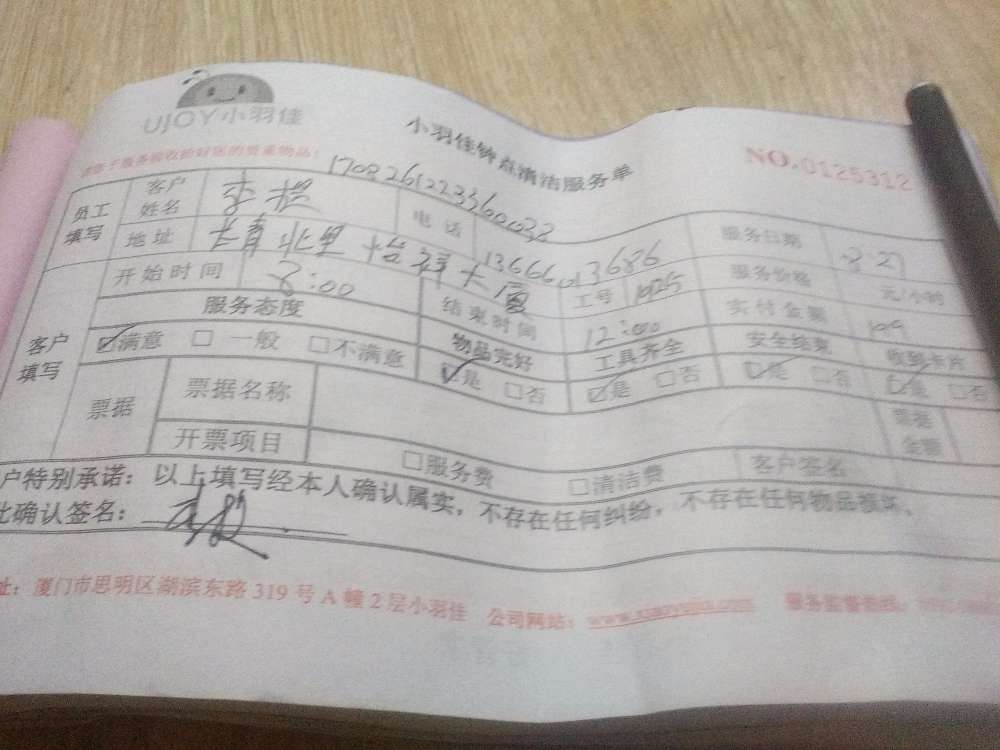 UJOY小羽佳
小羽佳钟点清洁服务单
NO.0125312
请亲于服务前收拾好您的贵重物品!
1708261223360038
员工填写 客户姓名 李 电话 13666013686 服务日期 8.27
地址 北里怡祥大厦 工号 1025 服务价格 元/小时
客户填写 开始时间 8:00 结束时间 12:00 实付金额
服务态度 物品完好 工具齐全 安全结束 收到卡片
☑满意 □一般 □不满意 ☑是 □否 ☑是 □否 ☑是 □否 ☑是 □否
票据 票据名称 票据金额
开票项目 □服务费 □清洁费 客户签名
户特别承诺：以上填写经本人确认属实，不存在任何纠纷，不存在任何物品损坏。
此确认签名：
址：厦门市思明区湖滨东路 319 号 A 幢 2 层小羽佳 公司网站：www.xiaoyujia.com 服务监督热线：